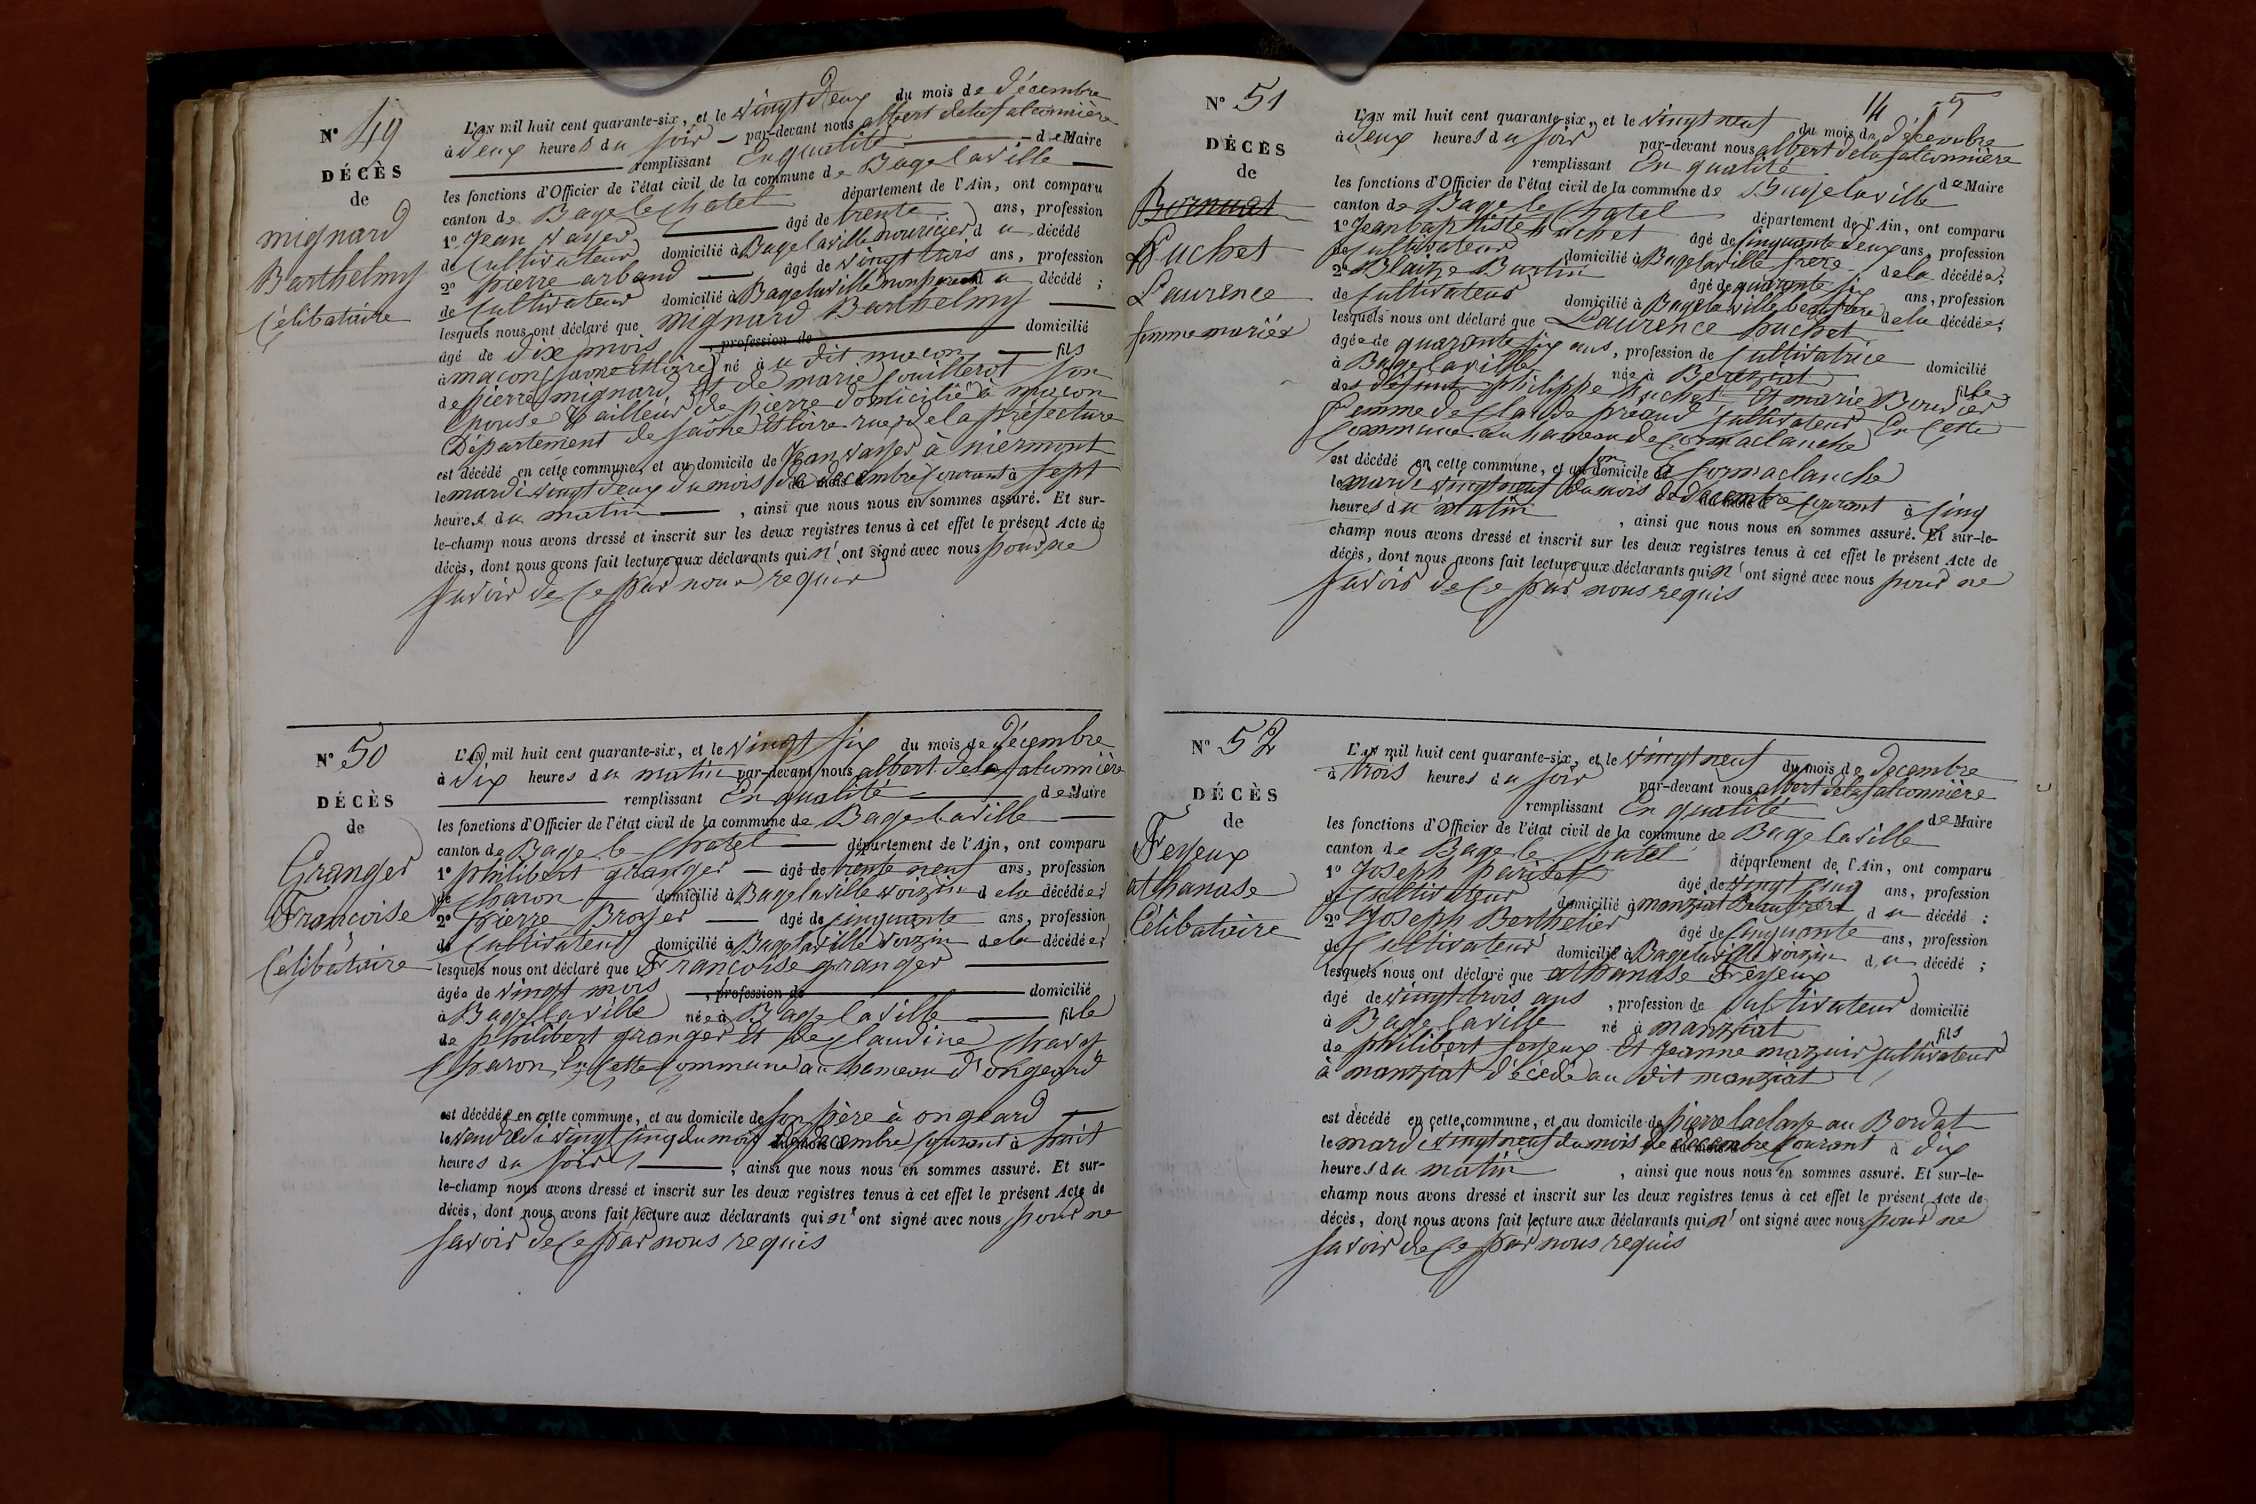 N° 49
DÉCÈS
de
mignard
Barthelmy
Célibataire
L'AN mil huit cent quarante-six, et le vingt deux du mois de décembre
à deux heures du soir par-devant nous albert delafalconnière
remplissant En qualité de Maire
les fonctions d'Officier de l'état civil de la commune de Bagelaville
canton de Bage le Chatel département de l'Ain, ont comparu
1° Jean vayer âgé de trente ans, profession
de Cultivateur domicilié à Bagelaville nouricier du décédé
2° pierre arband âgé de vingt trois ans, profession
de Cultivateur domicilié à Bagelaville non parent du décédé ;
lesquels nous ont déclaré que mignard Barthelmy
âgé de dix mois , profession de domicilié
à macon (saone et loire) né à u dit macon fils
de pierre mignard Et de marie Couillerot son
Epouse tailleur de pierre domicilié à macon
Département de saône et loire rue de la préfecture
est décédé en cette commune, et au domicile de Jean vayer à niermont
le mardi vingt deux du mois de decembre Courant à sept
heures du matin , ainsi que nous nous en sommes assuré. Et sur-
le-champ nous avons dressé et inscrit sur les deux registres tenus à cet effet le présent Acte de
décès, dont nous avons fait lecture aux déclarants qui n' ont signé avec nous pour ne
savoir de Ce par nous requis
N° 50
DÉCÈS
de
Granger
Françoise
Celibataire
L'AN mil huit cent quarante-six, et le vingt six du mois de décembre
à dix heures du matin par-devant nous albert delafalconnière
remplissant En qualité de Maire
les fonctions d'Officier de l'état civil de la commune de Bagelaville
canton de Bage le Chatel département de l'Ain, ont comparu
1° philibert granger âgé de trente neuf ans, profession
de Charon domicilié à Bagelaville voizin de la décédée ;
2° pierre Broyer âgé de Cinquante ans, profession
de Cultivateur domicilié à Bagelaville voizin de la décédée ;
lesquels nous ont déclaré que Françoise granger
âgée de vingt mois , profession de domicilié
à Bagelaville née à Bagelaville fille
de philibert granger Et de Claudine Chavot
Charon En Cette Commune au hameau d'ongeard
est décédée en cette commune, et au domicile de son père à ongeard
le vendredi vingt cinq du mois de decembre Courant à huit
heures du soir , ainsi que nous nous en sommes assuré. Et sur-
le-champ nous avons dressé et inscrit sur les deux registres tenus à cet effet le présent Acte de
décès, dont nous avons fait lecture aux déclarants qui n' ont signé avec nous pour ne
savoir de Ce par nous requis
14 5
N° 51
DÉCÈS
de
Huchet
Laurence
femme mariée
L'AN mil huit cent quarante-six, et le vingt neuf du mois de décembre
à deux heures du soir par-devant nous albert delafalconnière
remplissant En qualité de Maire
les fonctions d'Officier de l'état civil de la commune de Bagelaville
canton de Bage le Chatel département de l'Ain, ont comparu
1° Jean baptiste huchet âgé de Cinquante deux ans, profession
de Cultivateur domicilié à Bagelaville frere de la décédée ;
2° Blaize Burtin âgé de quarante six ans, profession
de Cultivateur domicilié à Bagelaville beaufrere de la décédée ;
lesquels nous ont déclaré que Laurence huchet
âgée de quarante six ans , profession de Cultivatrice domicilié
à Bagelaville née à Bereziat fille
des défunt philippe huchet Et marie Bourdier
Femme de Claude préaud Cultivateur En Cette
Commune au hameau de Cormaclanche
est décédé en cette commune, et au domicile à Cormaclanche
le mardi vingt neuf du mois de decembre Courant à Cinq
heures du matin , ainsi que nous nous en sommes assuré. Et sur-le-
champ nous avons dressé et inscrit sur les deux registres tenus à cet effet le présent Acte de
décès, dont nous avons fait lecture aux déclarants qui n' ont signé avec nous pour ne
savoir de Ce par nous requis
N° 52
DÉCÈS
de
Feyeux
athanase
Célibataire
L'AN mil huit cent quarante-six, et le vingt neuf du mois de decembre
à trois heures du soir par-devant nous albert delafalconnière
remplissant En qualité de Maire
les fonctions d'Officier de l'état civil de la commune de Bagelaville
canton de Bage le Chatel département de l'Ain, ont comparu
1° Joseph pariset âgé de vingt cinq ans, profession
de Cultivateur domicilié à manziat Beaufrère du décédé ;
2° Joseph Berthelier âgé de Cinquante ans, profession
de Cultivateur domicilié à Bagelaville voizin du décédé ;
lesquels nous ont déclaré que athanase Feyeux
âgé de vingt trois ans , profession de Cultivateur domicilié
à Bagelaville né à manziat fils
de philibert feyeux Et Jeanne mazuir Cultivateur
à manziat décédé au dit manziat
est décédé en cette commune, et au domicile de pierre laclasse au Bordat
le mardi vingt neuf du mois de decembre Courant à dix
heures du matin , ainsi que nous nous en sommes assuré. Et sur-le-
champ nous avons dressé et inscrit sur les deux registres tenus à cet effet le présent Acte de
décès, dont nous avons fait lecture aux déclarants qui n' ont signé avec nous pour ne
savoir de Ce par nous requis